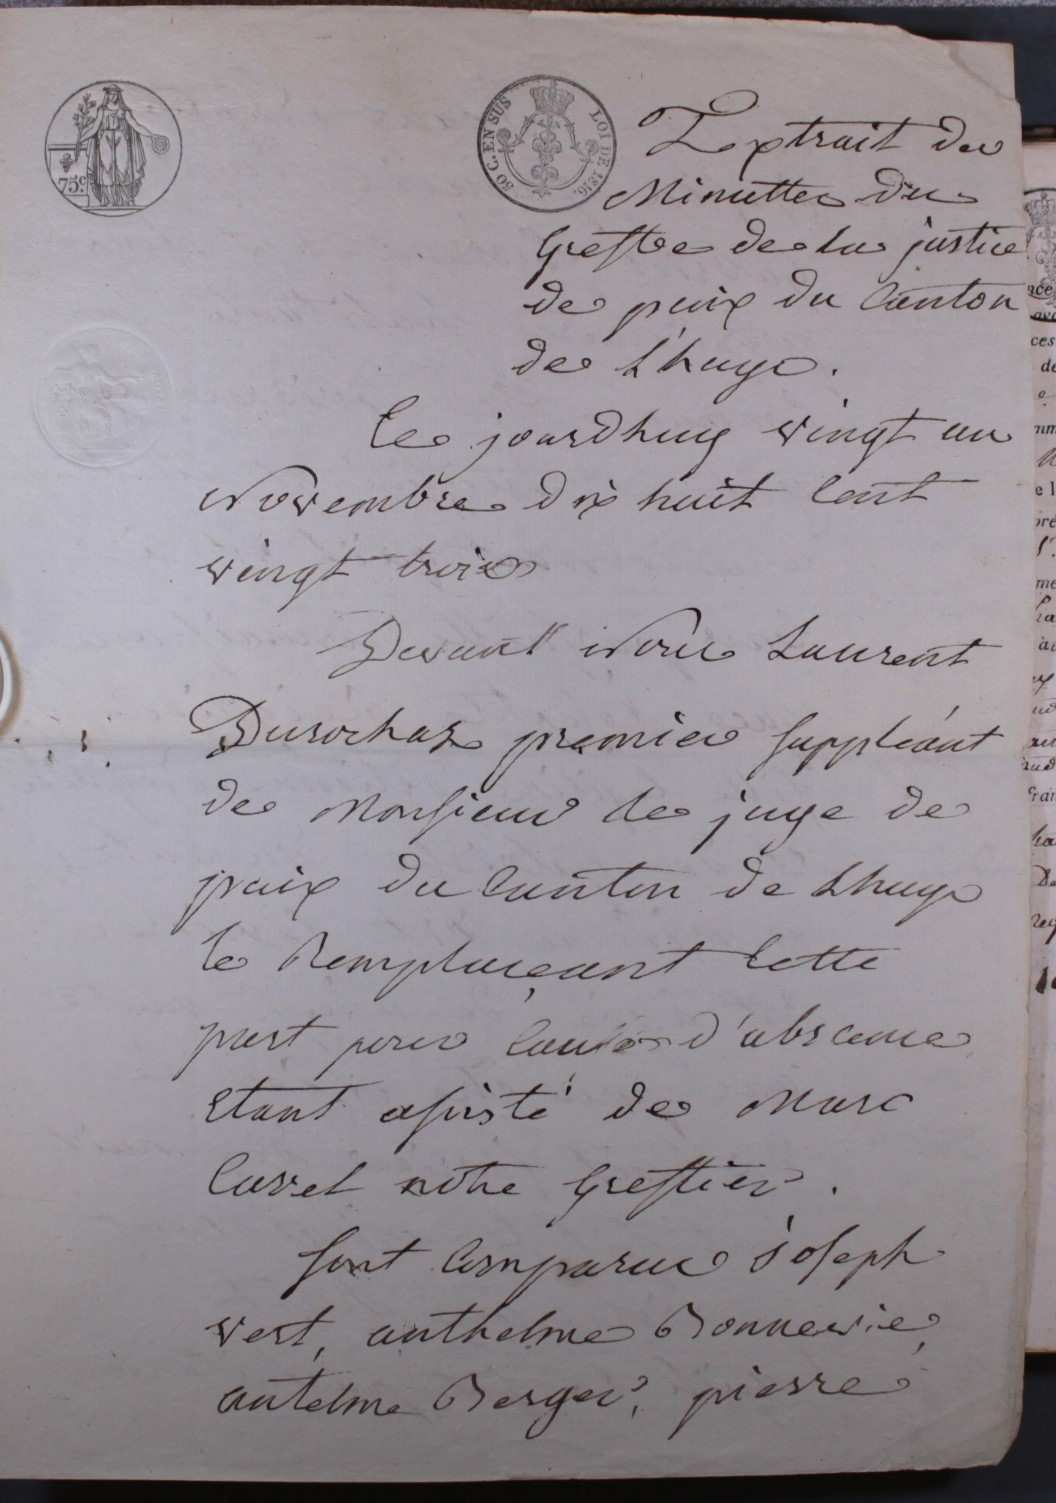 75c.
50 C. EN SUS LOI DE 1816.
Extrait des
Minuttes du
Greffe de la justice
de paix du Canton
de Lhuys.
Ce jourdhuy vingt un
Novembre dix huit Cent
vingt trois
Devant Nous Laurent
Durochat premier suppléant
de Monsieur le juge de
paix du Canton de Lhuys
le Remplaçant Cette
part pour Cause d'absence
Etant assisté de Marc
Cuvet notre Greffier.
Sont Comparus joseph
vert, anthelme Bonnevie,
antelme Berger, pierre